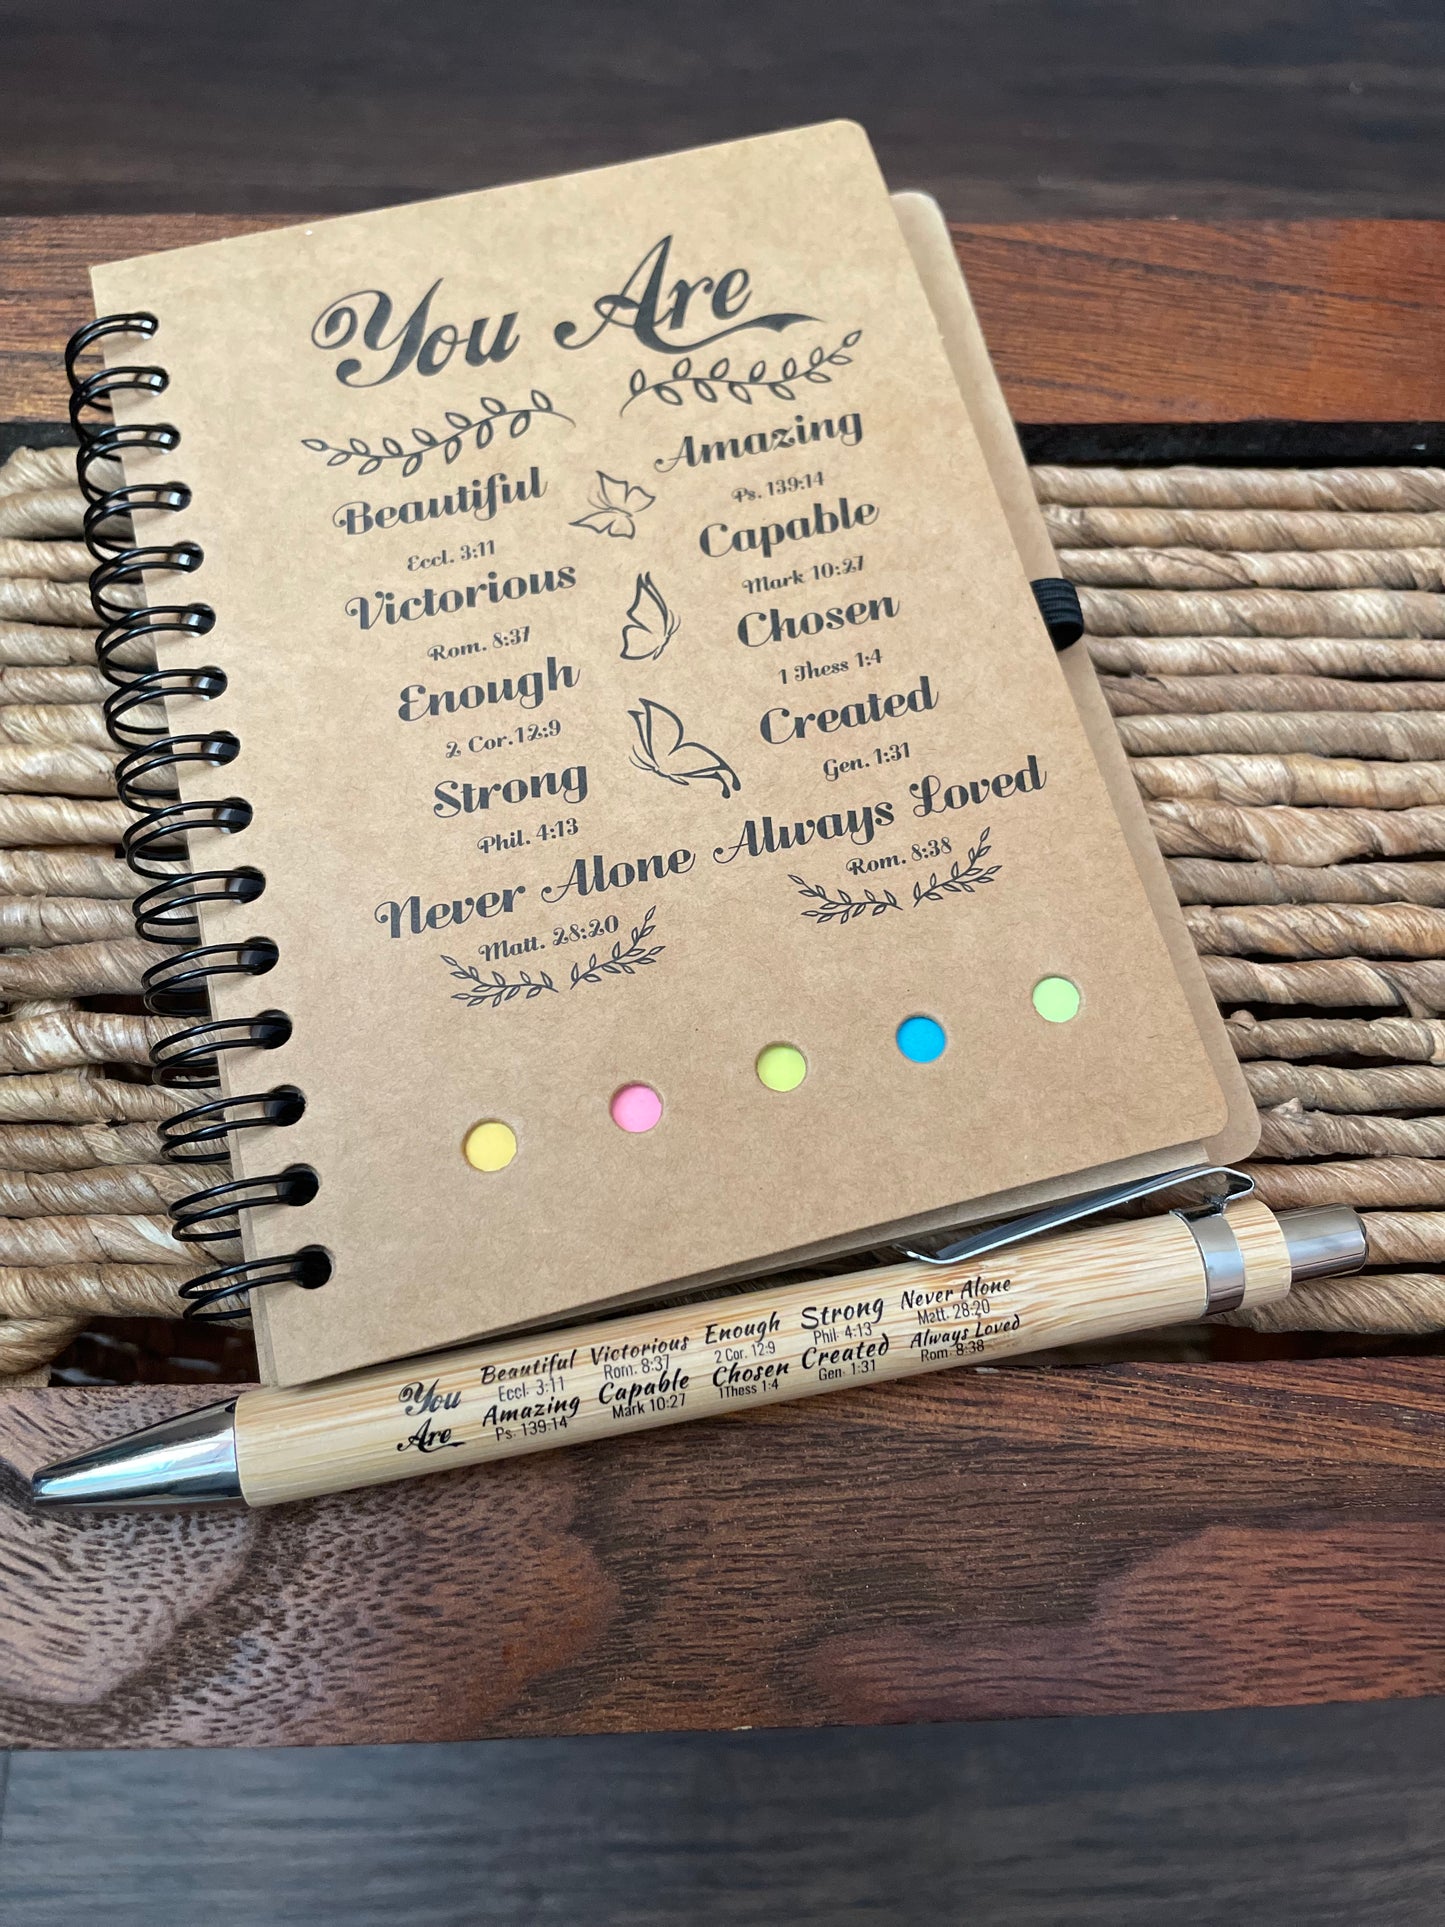 You Are
Beautiful
Eccl. 3:11
Victorious
Rom. 8:37
Enough
2 Cor.12:9
Strong
Phil. 4:13
Never Alone
Matt. 28:20
Amazing
Ps. 139:14
Capable
Mark 10:27
Chosen
1 Thess 1:4
Created
Gen. 1:31
Always Loved
Rom. 8:38
You
Are
Beautiful
Eccl. 3:11
Amazing
Ps. 139:14
Victorious
Rom. 8:37
Capable
Mark 10:27
Enough
2 Cor. 12:9
Chosen
1Thess 1:4
Strong
Phil. 4:13
Created
Gen. 1:31
Never Alone
Matt. 28:20
Always Loved
Rom. 8:38